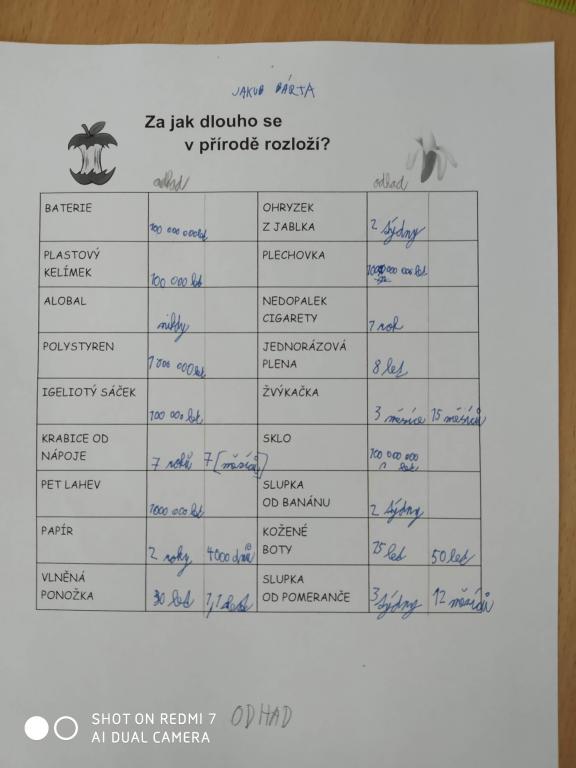 JAKUB BÁRTA
Za jak dlouho se
v přírodě rozloží?
odhad odhad
BATERIE OHRYZEK
Z JABLKA 2 týdny
PLASTOVÝ PLECHOVKA
KELÍMEK 100 000 let
ALOBAL NEDOPALEK
nikdy CIGARETY 1 rok
POLYSTYREN JEDNORÁZOVÁ
PLENA 8 let
IGELIOTÝ SÁČEK ŽVÝKAČKA
100 000 let 3 měsíce 15 měsíců
KRABICE OD SKLO
NÁPOJE 7 roků 7 [měsíců]
PET LAHEV SLUPKA
1000 000 let OD BANÁNU 2 týdny
PAPÍR KOŽENÉ
2 roky 4000 dnů BOTY 25 let 50 let
VLNĚNÁ SLUPKA
PONOŽKA 30 let OD POMERANČE 3 týdny 12 měsíců
ODHAD
SHOT ON REDMI 7
AI DUAL CAMERA